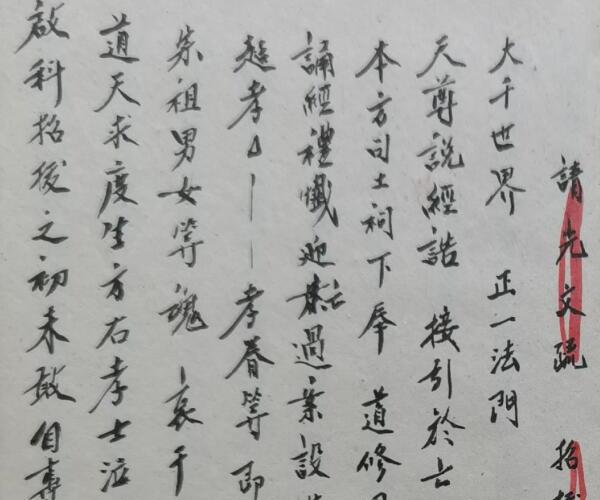 請光文疏 招
大千世界 正一法門
天尊說經誥 接引於亡
本方司土祠下奉 道修
誦經禮懺迎 過案設
趍孝 孝眷等 即
宗祖男女等魂 哀干
道天求度生方右孝士泣
啟科招後之初未敢自專